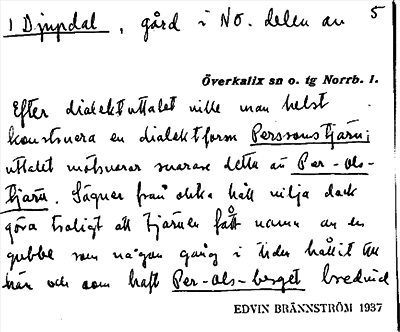 1 Djupdal, gård i NO. delen av 5
Överkalix sn o. tg Norrb. l.
Efter dialektuttalet ville man helst
konstruera en dialektform Perssonstjärn;
uttalet motsvarar snarare detta än Per-ols-
tjärn. Sägner från olika håll vilja dock
göra troligt att tjärnen fått namn av en
gubbe som någon gång i tiden hållit till
här och som haft Per-ols-berget bredvid
EDVIN BRÄNNSTRÖM 1937